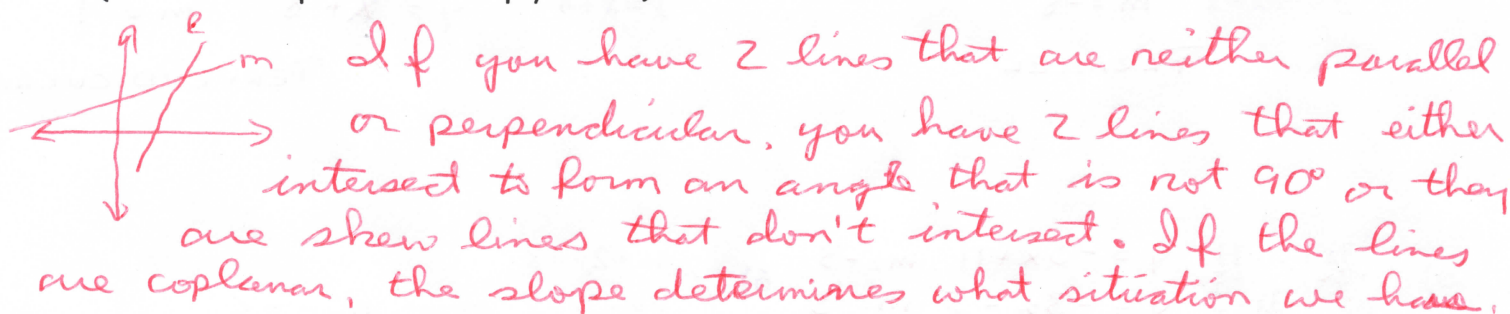 l
m
If you have 2 lines that are neither parallel
or perpendicular, you have 2 lines that either
intersect to form an angle that is not 90° or they
are skew lines that don't intersect. If the lines
are coplanar, the slope determines what situation we have.